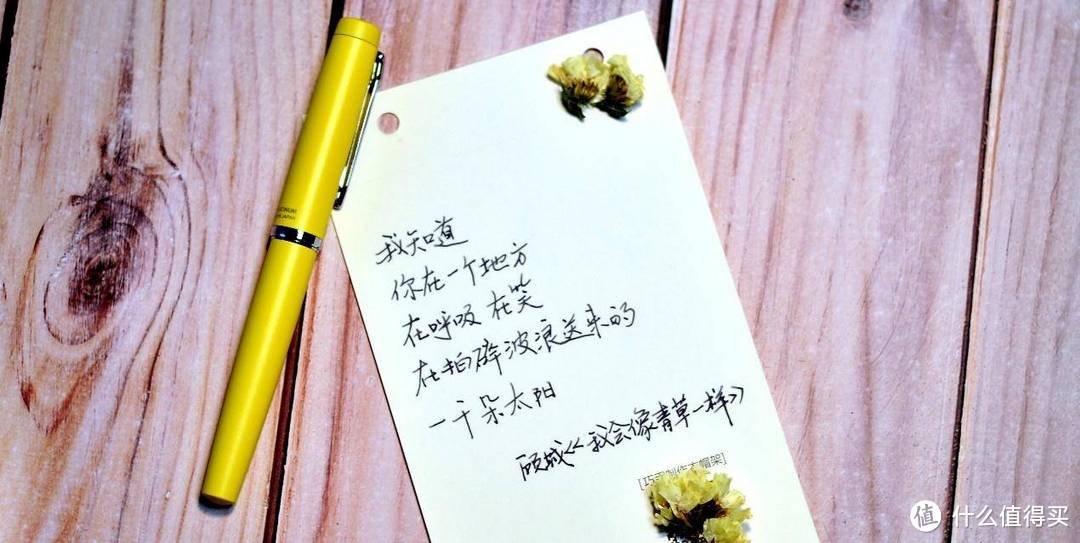 我知道
你在一个地方
在呼吸 在笑
在拍碎波浪送来的
一千朵太阳
顾城《我会像青草一样》
JAPAN
值 什么值得买